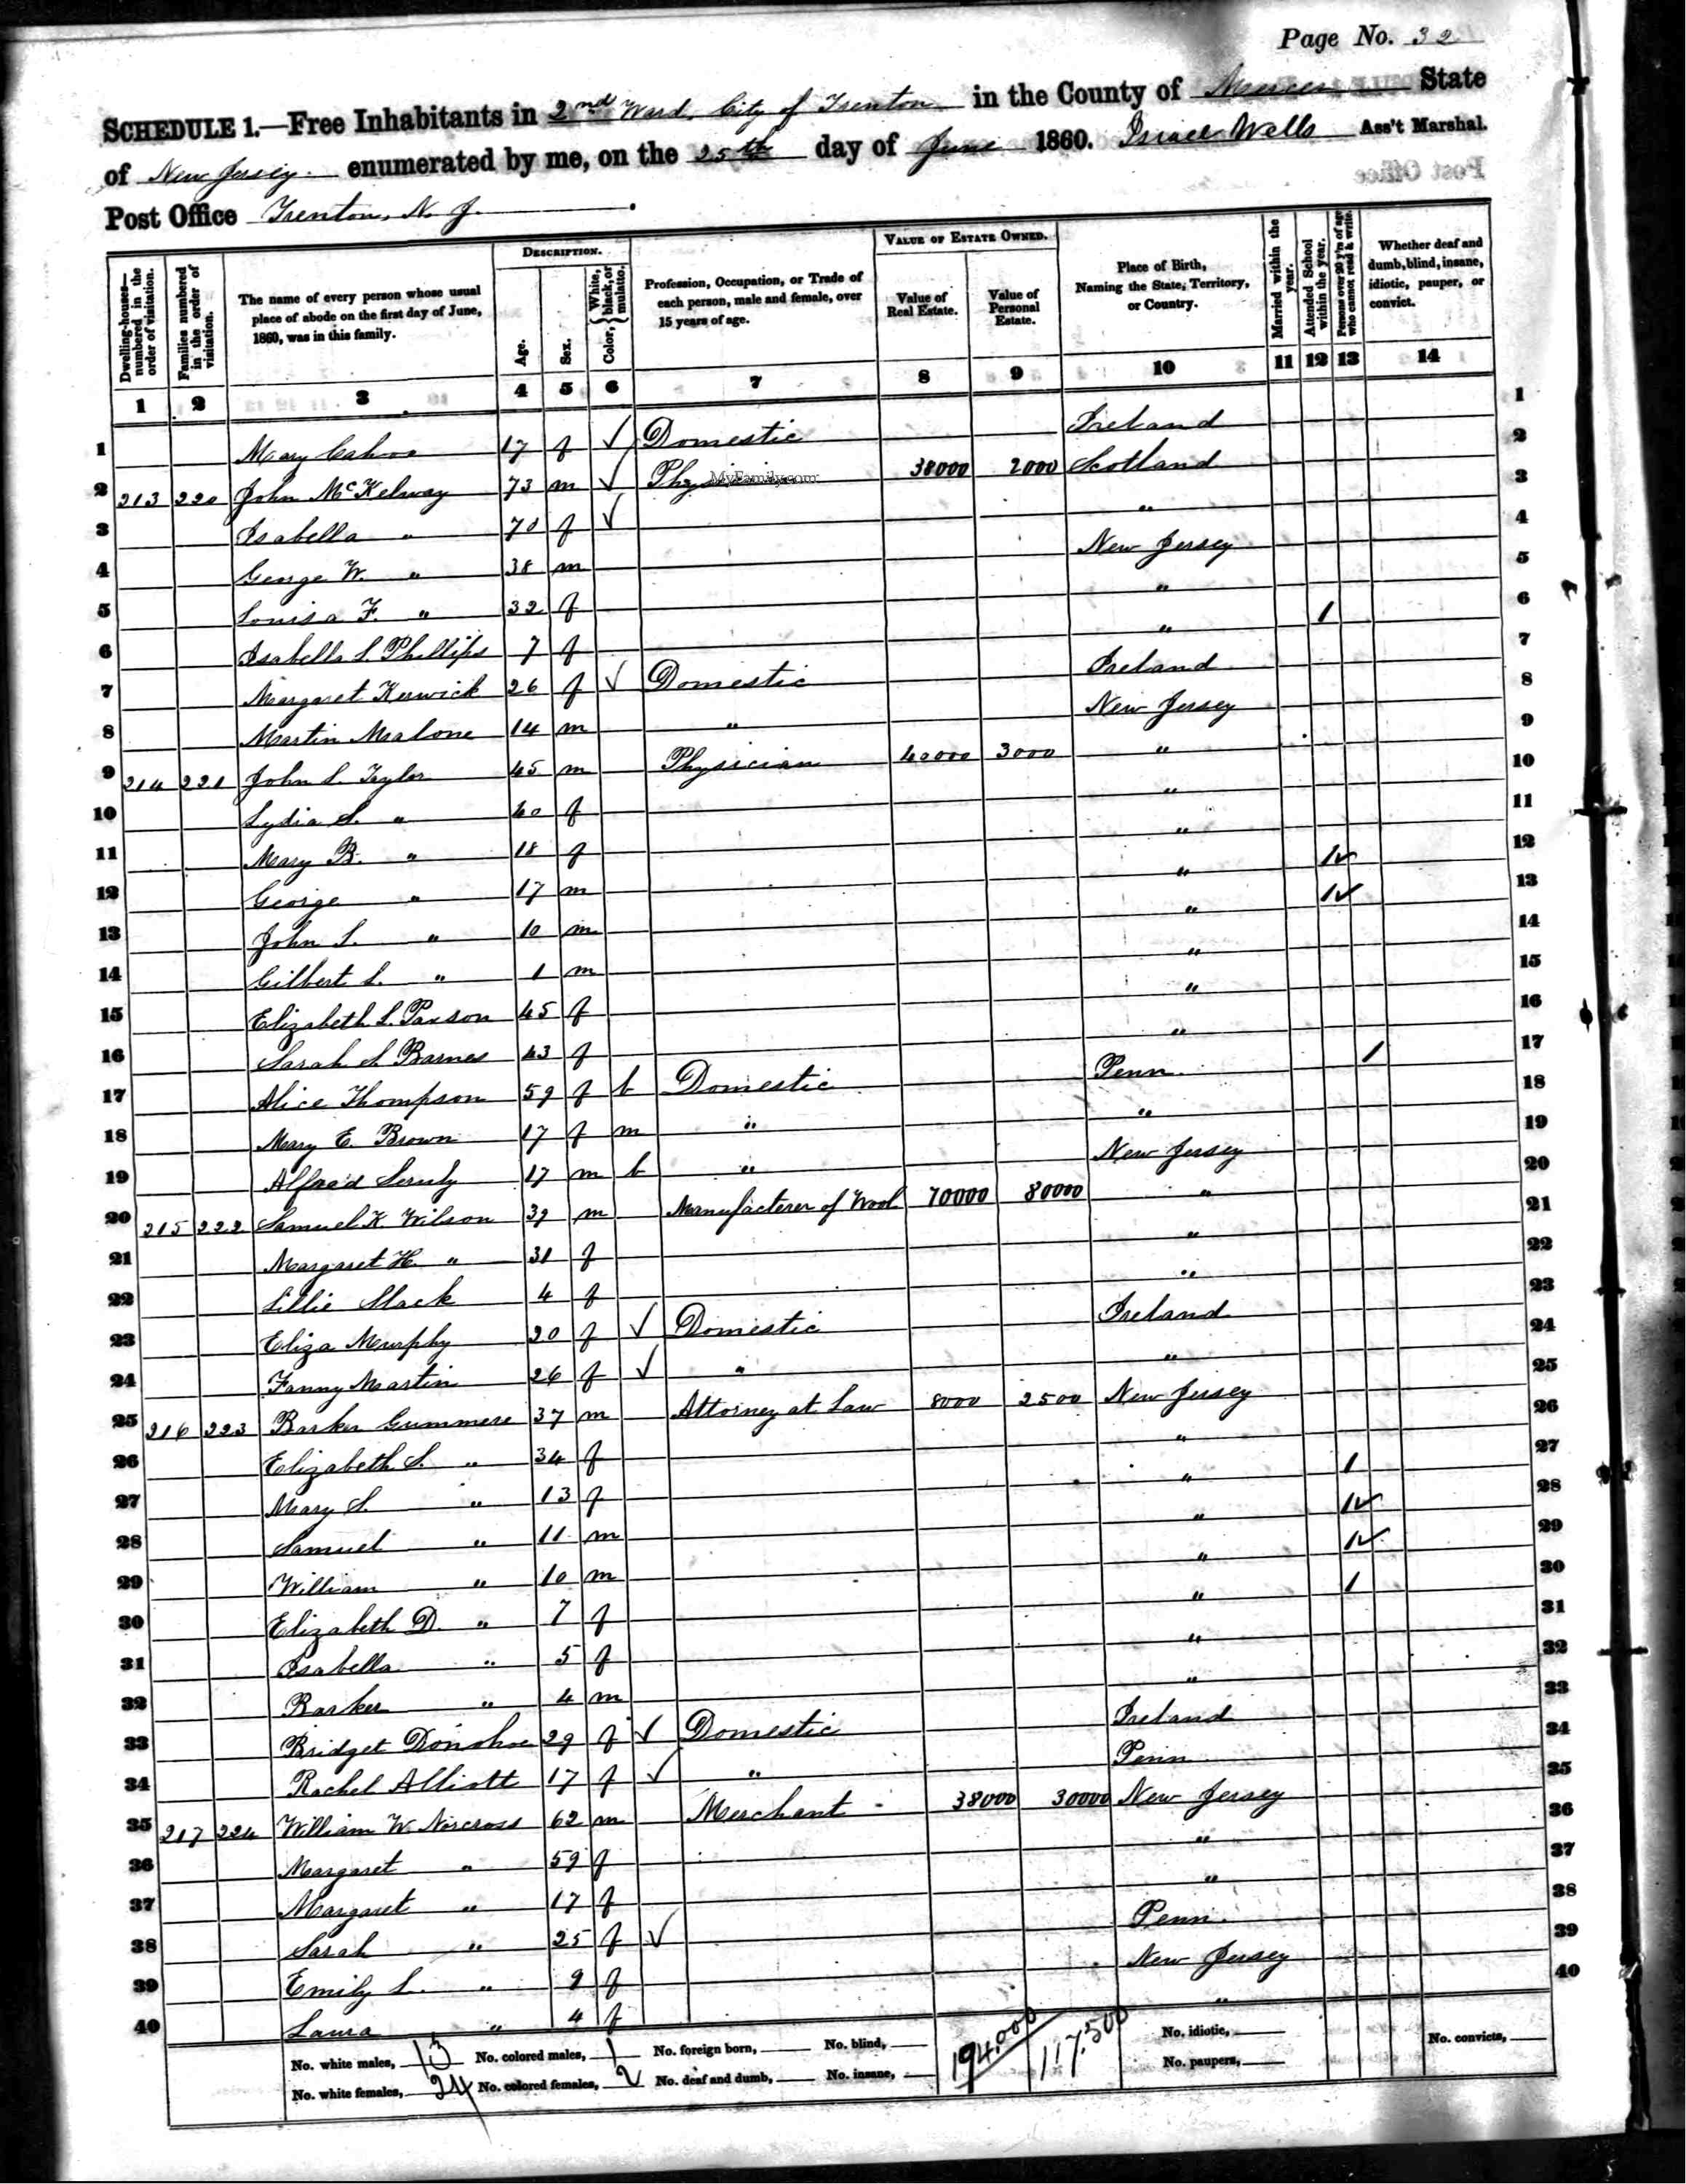 Page No. 32
SCHEDULE 1.—Free Inhabitants in 2nd Ward, City of Trenton in the County of Mercer State
of New Jersey enumerated by me, on the 25th day of June 1860. Israel Wells Ass't Marshal.
Post Office Trenton, N. J.
Post Office
Dwelling-houses—numbered in the order of visitation.
Families numbered in the order of visitation.
The name of every person whose usual place of abode on the first day of June, 1860, was in this family.
DESCRIPTION.
Age.
Sex.
Color, { White, black, or mulatto.
Profession, Occupation, or Trade of each person, male and female, over 15 years of age.
VALUE OF ESTATE OWNED.
Value of Real Estate.
Value of Personal Estate.
Place of Birth, Naming the State, Territory, or Country.
Married within the year.
Attended School within the year.
Persons over 20 y'rs of age who cannot read & write.
Whether deaf and dumb, blind, insane, idiotic, pauper, or convict.
1 2 3 4 5 6 7 8 9 10 11 12 13 14
1 Mary 17 f ✓ Domestic Ireland 1
2 213 220 John McKelway 73 m ✓ Physician 38000 2000 Scotland 2
MyFamily.com
3 Isabella " 70 f ✓ " 3
4 George W. " 38 m New Jersey 4
5 Louisa F. " 32 f " 5
6 Isabella S. Phillips 7 f " 1 6
7 Margaret Kerwick 26 f ✓ Domestic Ireland 7
8 Martin Malone 14 m " New Jersey 8
9 214 221 John L. Taylor 45 m Physician 40000 3000 " 9
10 Lydia S. " 40 f " 10
11 Mary B. " 18 f " 11
12 George " 17 m " 1✓ 12
13 John S. " 10 m " 1✓ 13
14 Gilbert L. " 1 m " 14
15 Elizabeth L. Paxson 45 f " 15
16 Sarah S Barnes 43 f " 16
17 Alice Thompson 59 f b Domestic Penn. 1 17
18 Mary E. Brown 17 f m " " 18
19 Alfred 17 m b " New Jersey 19
20 215 222 Samuel K. Wilson 39 m Manufacterer of Wool 70000 80000 " 20
21 Margaret H. " 31 f " 21
22 Lillie Slack 4 f " 22
23 Eliza Murphy 20 f ✓ Domestic Ireland 23
24 Fanny Martin 26 f ✓ " " 24
25 216 223 Barker Gummere 37 m Attorney at Law 8000 2500 New Jersey 25
26 Elizabeth S. " 34 f " 26
27 Mary S. " 13 f " 1 27
28 Samuel " 11 m " 1✓ 28
29 William " 10 m " 1✓ 29
30 Elizabeth D. " 7 f " 1 30
31 Isabella " 5 f " 31
32 Barker " 4 m " 32
33 Bridget Donohoe 29 f ✓ Domestic Ireland 33
34 Rachel Alliott 17 f ✓ " Penn 34
35 217 224 William W. Norcross 62 m Merchant 38000 30000 New Jersey 35
36 Margaret " 59 f " 36
37 Margaret " 17 f " 37
38 Sarah " 25 f ✓ Penn. 38
39 Emily L. " 9 f New Jersey 39
40 Laura " 4 f " 40
No. white males, 13 No. colored males, 1 No. foreign born, No. blind, 194.000 117.500 No. idiotic, No. convicts,
No. white females, 24 No. colored females, 2 No. deaf and dumb, No. insane, No. paupers,